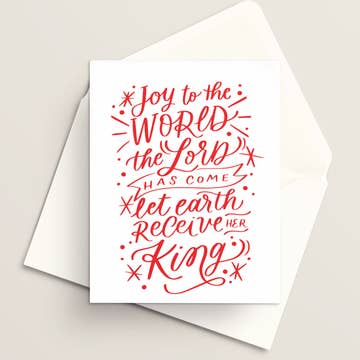 Joy to the
WORLD
the Lord
HAS COME
let earth
RECEIVE HER
King